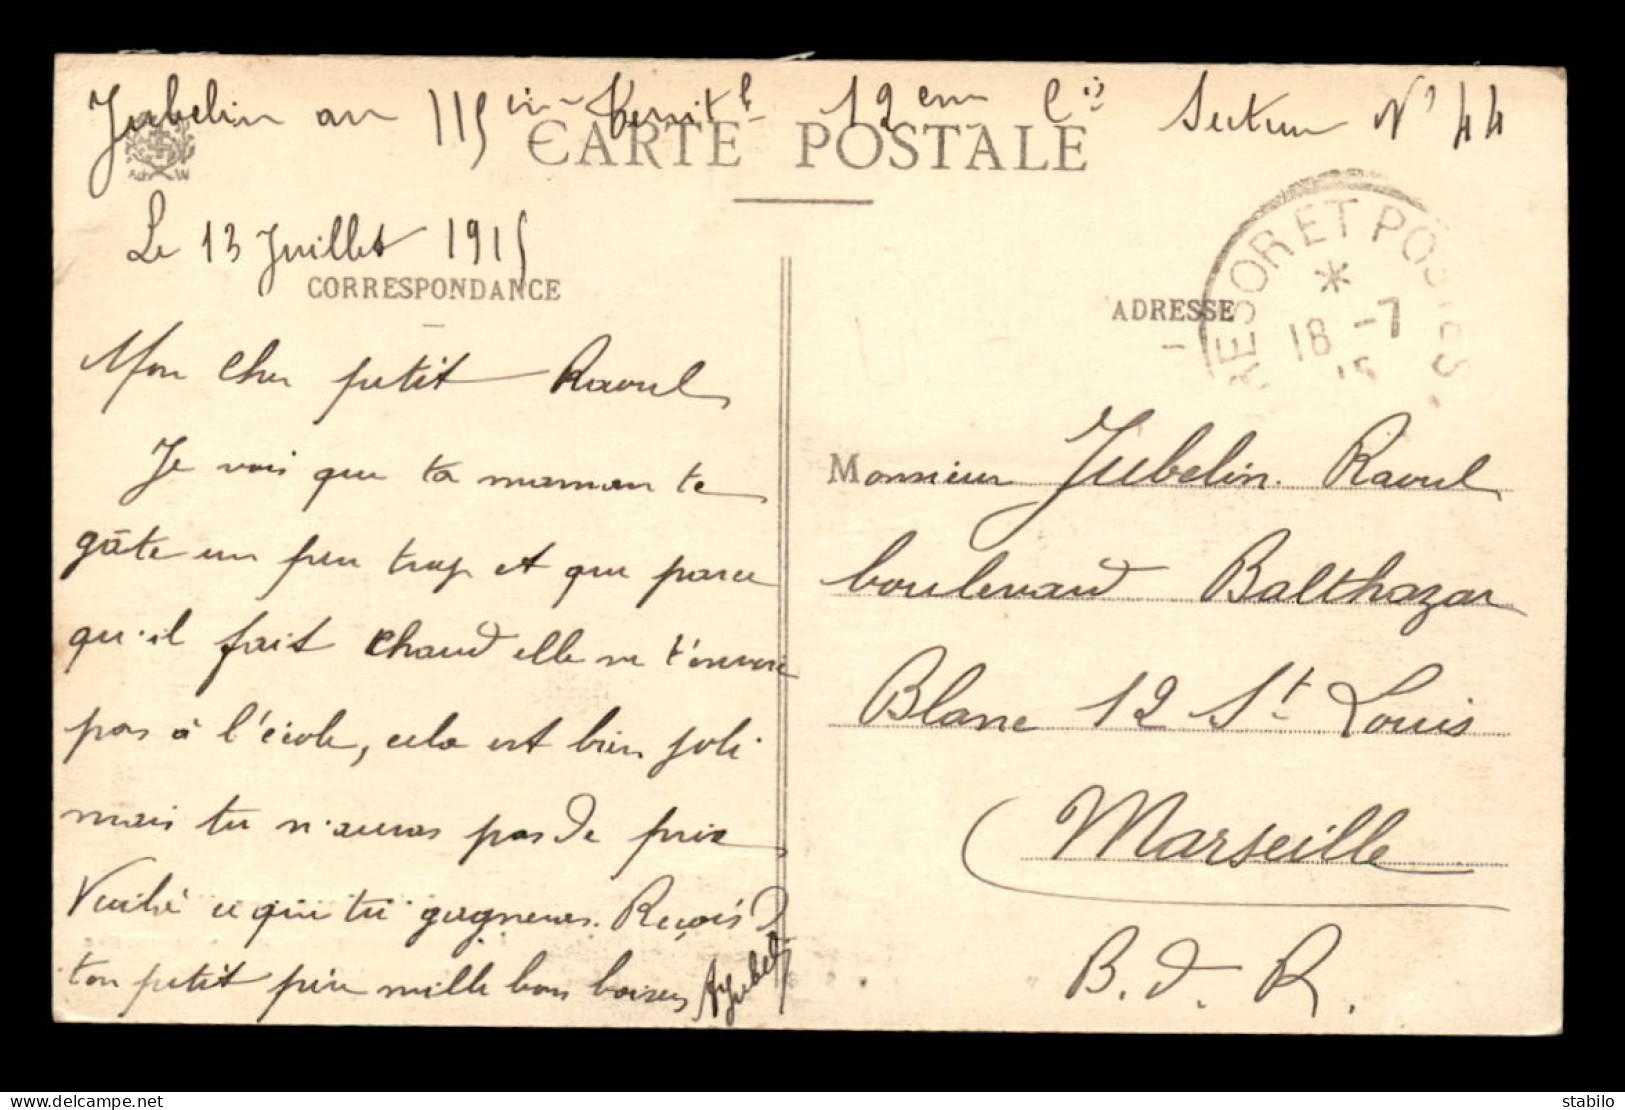 Jubelin au 115ème Territ.le 12ème Cie Secteur N° 44
CARTE POSTALE
Le 13 Juillet 1915
CORRESPONDANCE
Mon cher petit Raoul
Je vois que ta maman te
gâte un peu trop et que parce
qu'il fait chaud elle ne t'envoie
pas à l'école, cela est bien joli
mais tu n'auras pas de prix
Voilà ce que tu gagneras. Reçois de
ton petit père mille bons baisers
Jubelin
TRESOR ET POSTES
*
18 -7
15
ADRESSE
Monsieur Jubelin Raoul
boulevard Balthazar
Blanc 12 St Louis
Marseille
B. d. R.
stabilo
www.delcampe.net